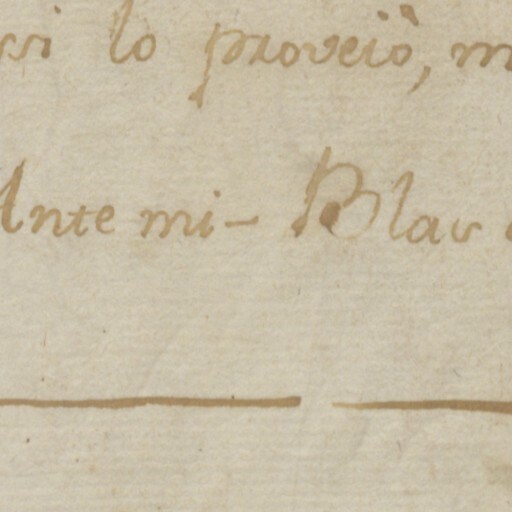 lo proveiò,
Ante mi - Blas